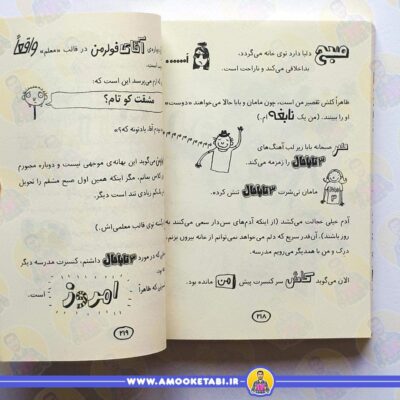 صبح
دلیا دارد توی خانه می‌گردد،
بداخلاقی می‌کند و ناراحت است.
ظاهراً کلش تقصیر من است، چون مامان و بابا حالا می‌خواهند «دوست»
او را ببینند. (من یک نابغه ام.)
صبحانه بابا زیر لب آهنگ‌های
را زمزمه می‌کند.
مامان تی‌شرت تنش کرده.
آدم خیلی خجالت می‌کشد (از اینکه آدم‌های سن‌دار سعی می‌کنند به
روز باشند). آن‌قدر سریع که دلم می‌خواهد نمی‌توانم از خانه بیرون بزنم.
درک و من با همدیگر می‌رویم مدرسه.
الان می‌گوید کلش سر کنسرت پیش من مانده بود.
۲۱۸
آقای فولرمن در قالب «معلم» واقعاً
می‌پرسد این است که:
مشقت کو تام؟
می‌گوید این بهانه‌ی موجهی نیست و دوباره مجبورم
مگر اینکه همین اول صبح مشقم را تحویل
زیادی تند است دیگر.
توی قالب معلمی‌اش.)
در مورد داشتم، کنسرت مدرسه دیگر
که ظاهراً امروز است.
۲۱۹
WWW.AMOOKETABI.IR